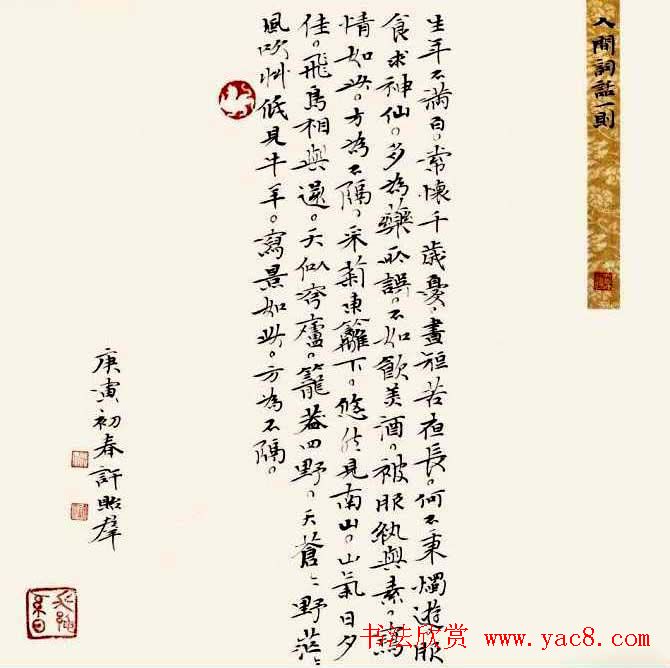 人間詞話一則
生年不滿百。常懷千歲憂。晝短苦夜長。何不秉燭遊服
食求神仙。多為藥所誤。不如飲美酒。被服紈與素。寫
情如此。方為不隔。采菊東籬下。悠然見南山。山氣日夕
佳。飛鳥相與還。天似穹廬。籠蓋四野。天蒼〻野茫〻
風吹艸低見牛羊。寫景如此。方為不隔。
庚寅初春許照群
书法欣赏 www.yac8.com